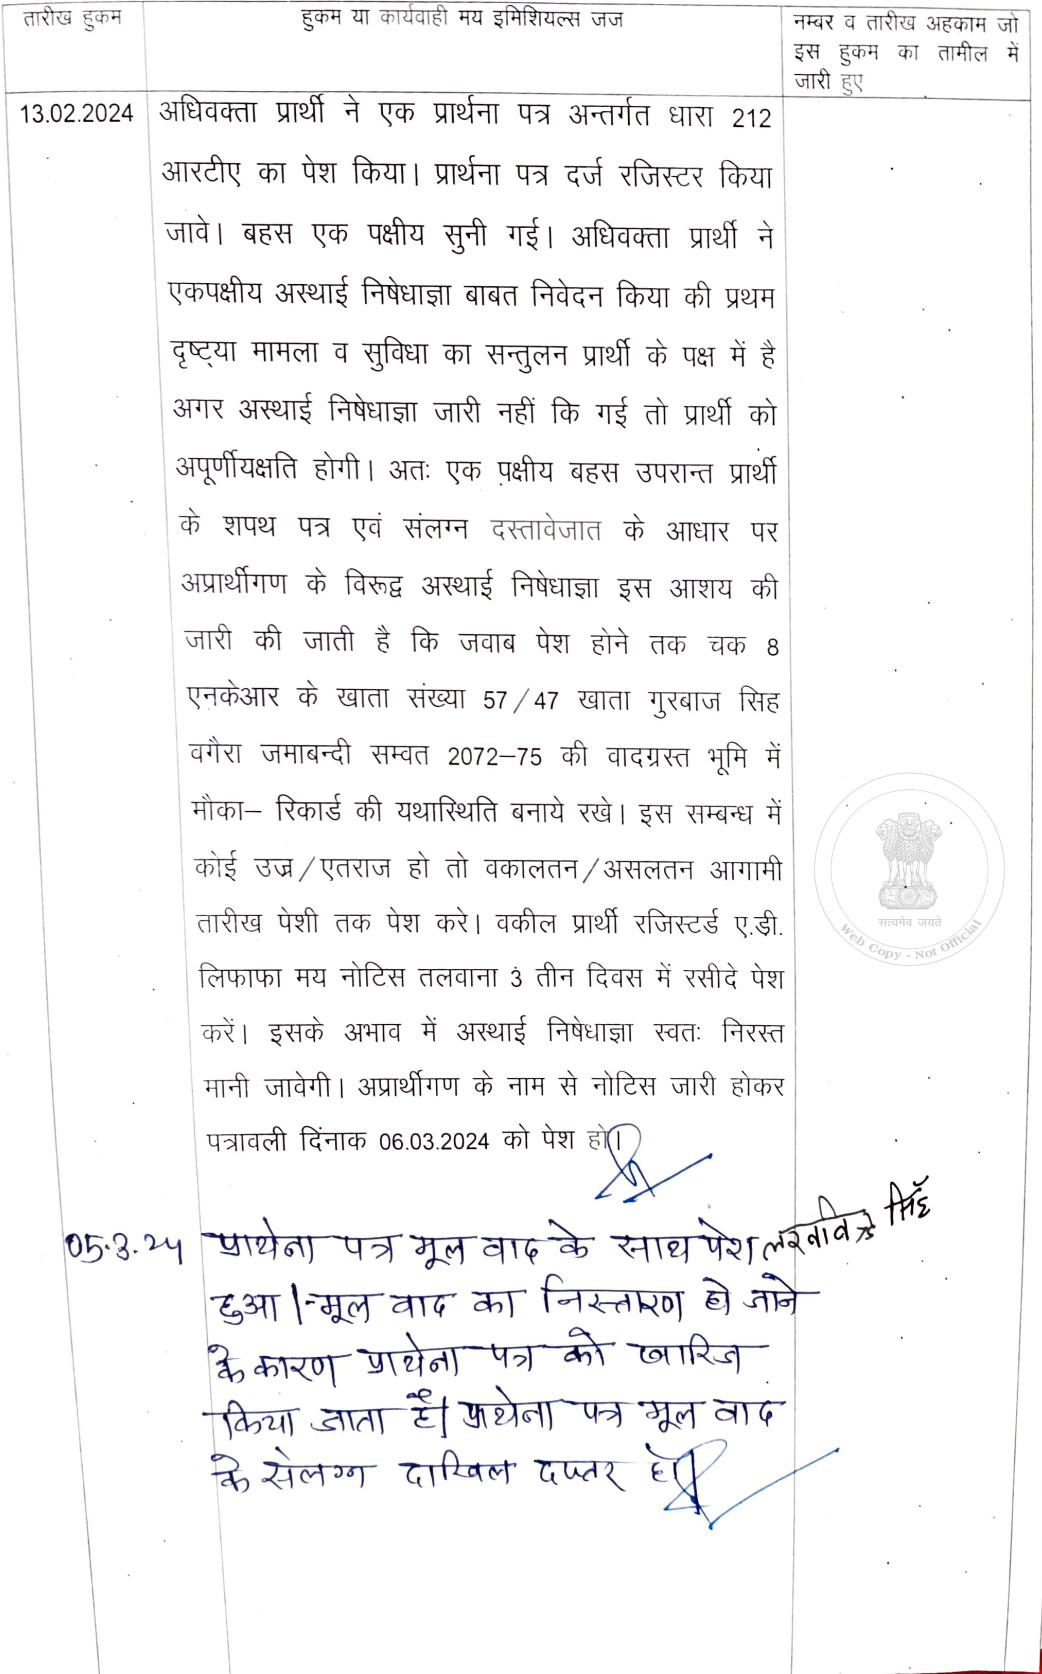 तारीख हुकम
हुकम या कार्यवाही मय इमिशियल्स जज
नम्बर व तारीख अहकाम जो
इस हुकम का तामील में
जारी हुए
13.02.2024
अधिवक्ता प्रार्थी ने एक प्रार्थना पत्र अन्तर्गत धारा 212
आरटीए का पेश किया। प्रार्थना पत्र दर्ज रजिस्टर किया
जावे। बहस एक पक्षीय सुनी गई। अधिवक्ता प्रार्थी ने
एकपक्षीय अस्थाई निषेधाज्ञा बाबत निवेदन किया की प्रथम
दृष्ट्या मामला व सुविधा का सन्तुलन प्रार्थी के पक्ष में है
अगर अस्थाई निषेधाज्ञा जारी नहीं कि गई तो प्रार्थी को
अपूर्णीयक्षति होगी। अतः एक पक्षीय बहस उपरान्त प्रार्थी
के शपथ पत्र एवं संलग्न दस्तावेजात के आधार पर
अप्रार्थीगण के विरूद्व अस्थाई निषेधाज्ञा इस आशय की
जारी की जाती है कि जवाब पेश होने तक चक 8
एनकेआर के खाता संख्या 57/47 खाता गुरबाज सिह
वगैरा जमाबन्दी सम्वत 2072–75 की वादग्रस्त भूमि में
मौका– रिकार्ड की यथास्थिति बनाये रखे। इस सम्बन्ध में
कोई उज्र/एतराज हो तो वकालतन/असलतन आगामी
तारीख पेशी तक पेश करे। वकील प्रार्थी रजिस्टर्ड ए.डी.
लिफाफा मय नोटिस तलवाना 3 तीन दिवस में रसीदे पेश
करें। इसके अभाव में अस्थाई निषेधाज्ञा स्वतः निरस्त
मानी जावेगी। अप्रार्थीगण के नाम से नोटिस जारी होकर
पत्रावली दिंनाक 06.03.2024 को पेश हो।
सत्यमेव जयते
Web Copy - Not Official
05.3.24 प्राथेना पत्र मूल वाद के साथ पेश
सिंह
हुआ।-मूल वाद का निस्तारण हो जाने
के कारण प्राथेना पत्र को खारिज
किया जाता है। प्राथेना पत्र मूल वाद
के संलग्न दाखिल दफ्तर हो।